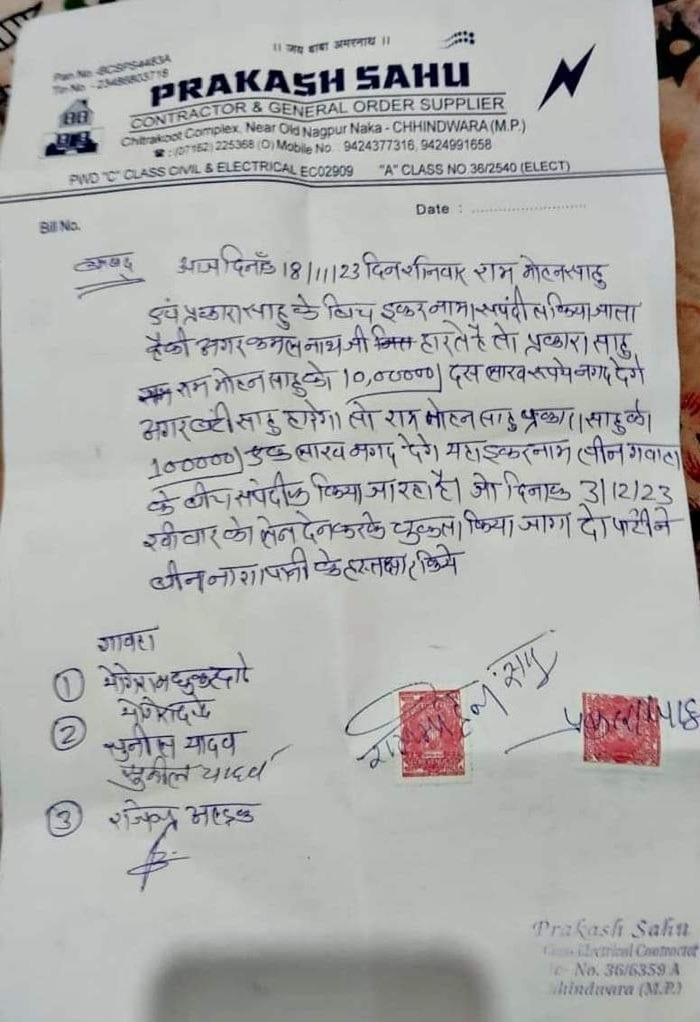 ।। जय बाबा अमरनाथ ।।
Pan No -BCSPS4483A
Tin No - 23486803718
PRAKASH SAHU
CONTRACTOR & GENERAL ORDER SUPPLIER
Chitrakoot Complex, Near Old Nagpur Naka - CHHINDWARA (M.P.)
☎ : (07162) 225368 (O) Mobile No. 9424377316, 9424991658
PWD "C" CLASS CIVIL & ELECTRICAL EC02909 "A" CLASS NO.36/2540 (ELECT)
Date : ............................
Bill No.
आज दिनाँक 18/11/23 दिन शनिवार राम मोहन साहु
एवं प्रकाश साहु के बिच इकरनामा संपदीत किया जाता
हैकी अगर कमलनाथ जी हारते है तो प्रकाश साहु
राम मोहन साहु को 10,00000/ दस लाख रूपये नगद देगे
अगर बंटी साहु हारेगे तो राम मोहन साहु प्रकाश साहु को
100000/ एक लाख नगद देगे यहा इकरनाम तीन गवाहा
के बीच संपदीत किया जा रहा है। जो दिनाक 3/12/23
रवीवार को लेन देन करके चुकता किया जागा दो पार्टी ने
बीन नाशा पानी के हस्ताक्षर किये
गावहा
①
②
सुनील यादव
सुनील यादव
③
राममोहन साहु
प्रकाश साहु
Prakash Sahu
Class Electrical Contractor
No. 36/6359 A
hhindwara (M.P.)